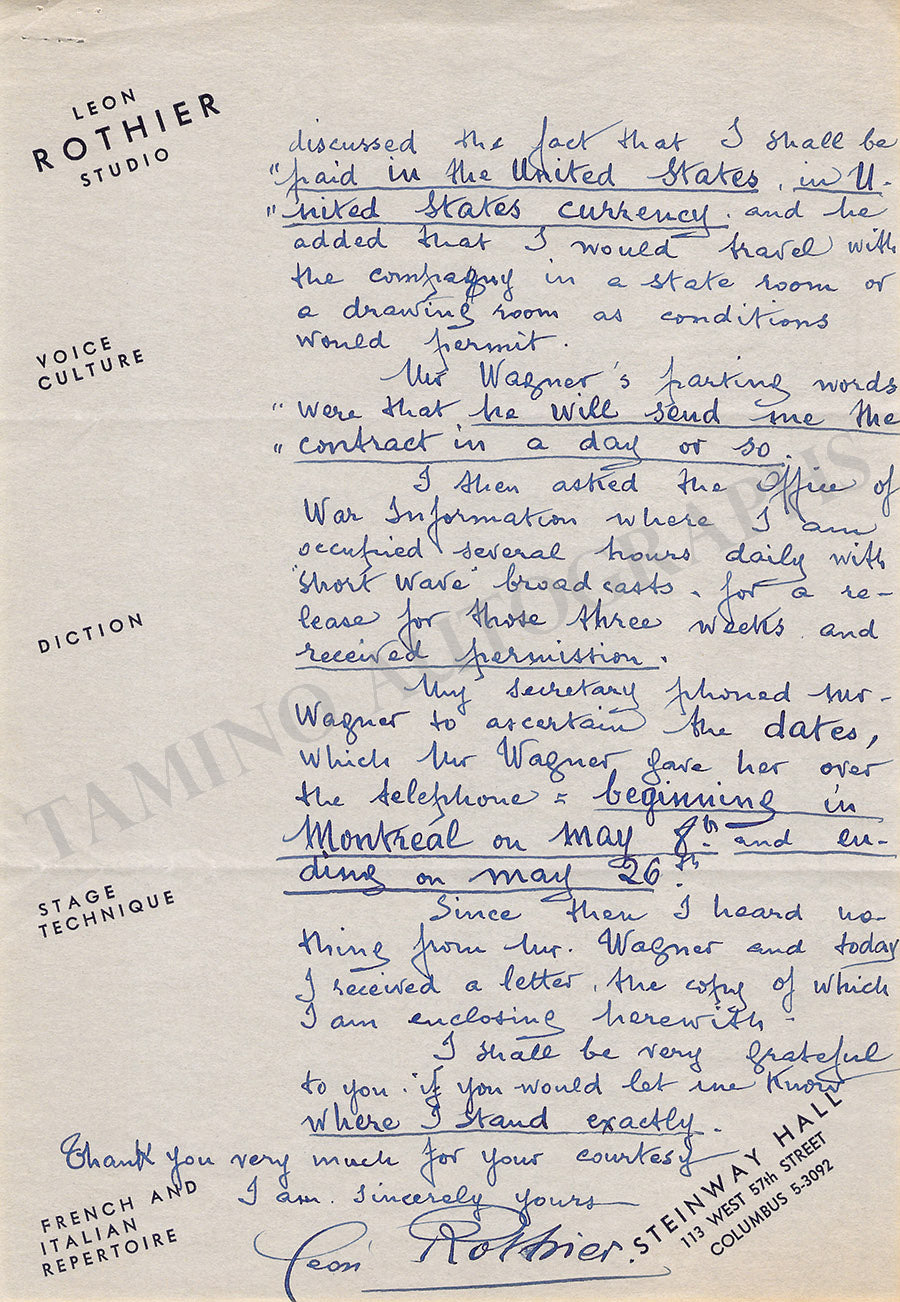 LEON
ROTHIER
STUDIO
discussed the fact that I shall be
"paid in the United States, in U-
"nited States currency. and he
added that I would travel with
the compagny in a state room or
a drawing room as conditions
would permit.
VOICE
CULTURE
Mr Wagner's parting words
"were that he will send me the
"contract in a day or so.
I then asked the Office of
War Information where I am
occupied several hours daily with
"short wave" broadcasts. for a re-
lease for those three weeks and
received permission.
DICTION
My secretary phoned Mr.
Wagner to ascertain the dates,
which Mr Wagner gave her over
the telephone = beginning in
Montréal on May 8th. and en-
ding on May 26th.
STAGE
TECHNIQUE
Since then I heard no-
thing from Mr. Wagner and today
I received a letter, the copy of which
I am enclosing herewith -
I shall be very grateful
to you if you would let me know
where I stand exactly.
Thank you very much for your courtesy
I am. Sincerely yours
Léon Rothier.
FRENCH AND
ITALIAN
REPERTOIRE
STEINWAY HALL
113 WEST 57th STREET
COLUMBUS 5-3092
TAMINO AUTOGRAPHS